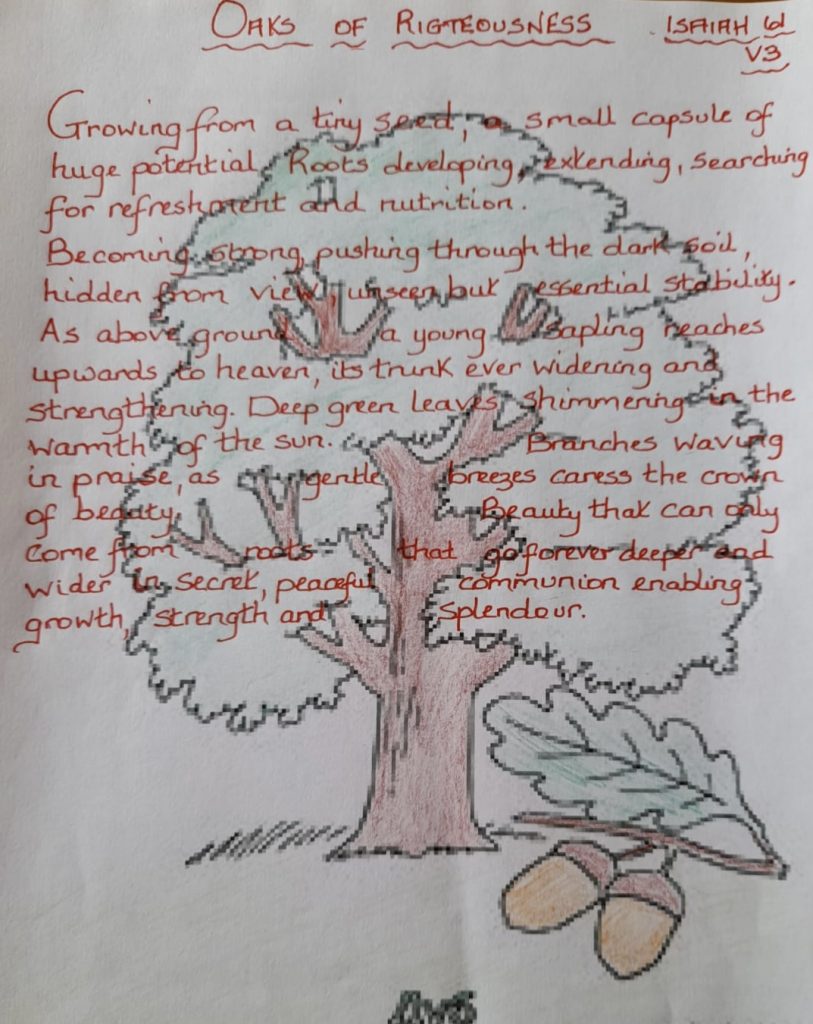 OAKS OF RIGTEOUSNESS ISAIAH 61
V3
Growing from a tiny seed, a small capsule of
huge potential. Roots developing, extending, searching
for refreshment and nutrition.
Becoming strong, pushing through the dark soil,
hidden from view, unseen but essential stability.
As above ground a young sapling reaches
upwards to heaven, its trunk ever widening and
strengthening. Deep green leaves shimmering in the
warmth of the sun. Branches waving
in praise, as gentle breezes caress the crown
of beauty. Beauty that can only
come from roots that go forever deeper and
wider in secret, peaceful communion enabling
growth, strength and splendour.